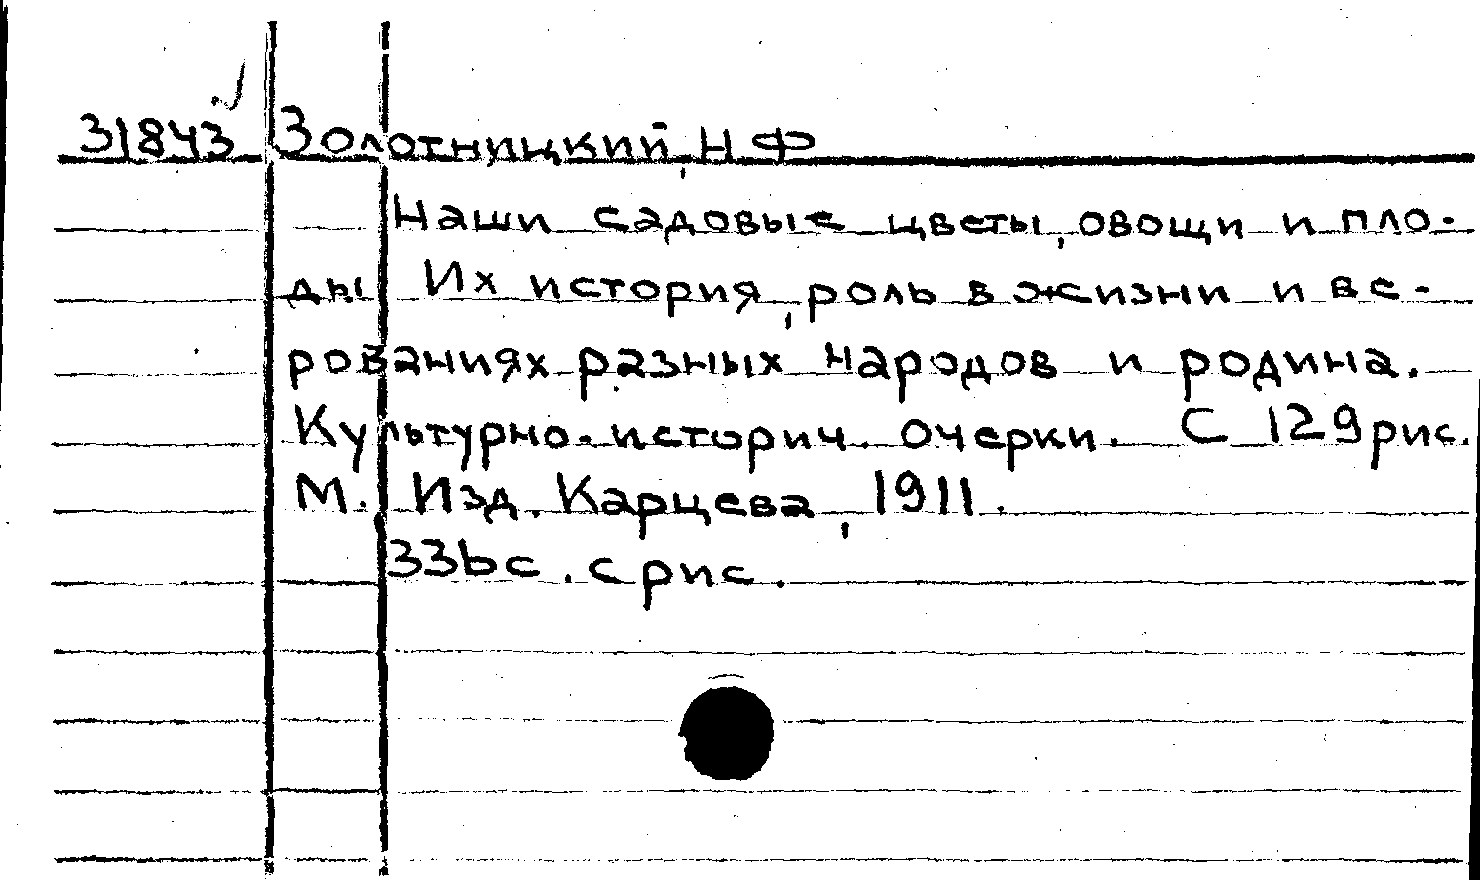 31843 Золотницкий, Н Ф
Наши садовые цветы, овощи и пло-
ды Их история, роль в жизни и ве-
рованиях разных народов и родина.
Культурно-историч. очерки. С 129 рис.
М. Изд. Карцева, 1911.
336 с. с рис.